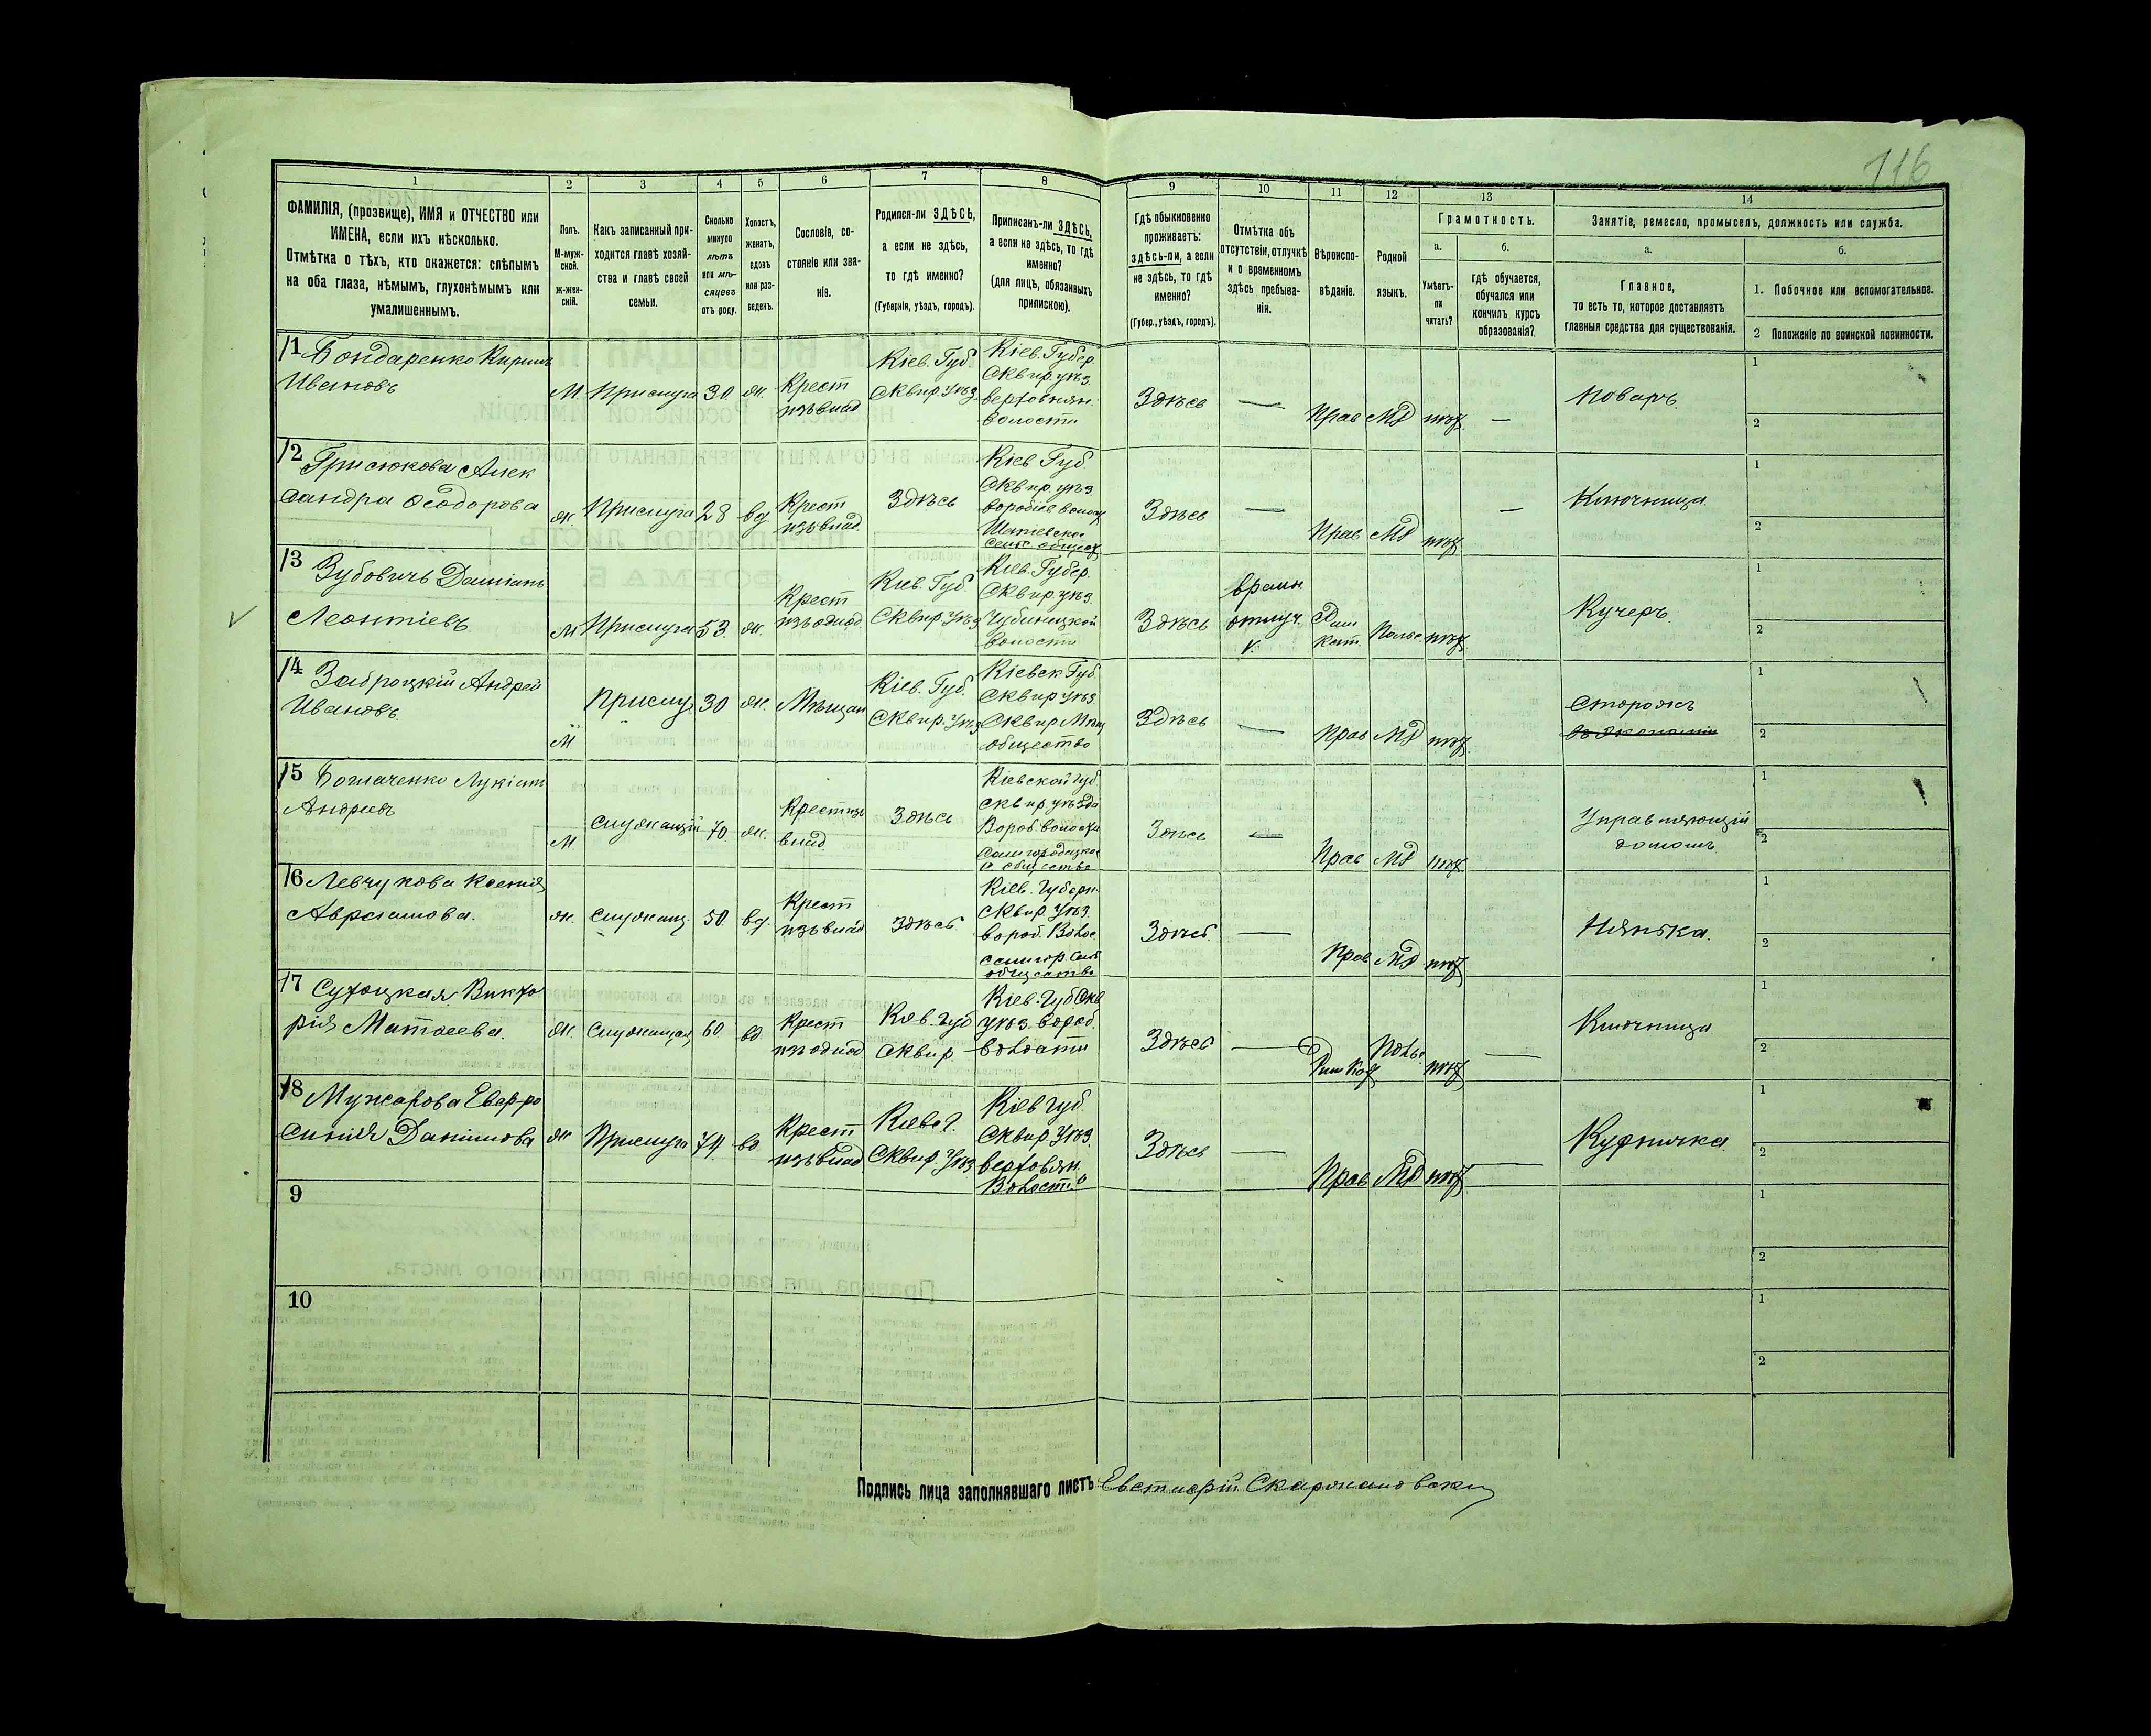 116
1
2
3
4
5
6
7
8
9
10
11
12
13
14
ФАМИЛІЯ, (прозвище), ИМЯ и ОТЧЕСТВО или
ИМЕНА, если ихъ нѣсколько.
Отмѣтка о тѣхъ, кто окажется: слѣпымъ
на оба глаза, нѣмымъ, глухонѣмымъ или
умалишеннымъ.
Полъ.
М-муж-
ской.
ж-жен-
скій.
Какъ записанный при-
ходится главѣ хозяй-
ства и главѣ своей
семьи.
Сколько
минуло
лѣтъ
или мѣ-
сяцевъ
отъ роду.
Холостъ,
женатъ,
вдовъ
или раз-
веденъ.
Сословіе, со-
стояніе или зва-
ніе.
Родился-ли ЗДѢСЬ,
а если не здѣсь,
то гдѣ именно?
(Губернія, уѣздъ, городъ).
Приписанъ-ли ЗДѢСЬ,
а если не здѣсь, то гдѣ
именно?
(для лицъ, обязанныхъ
припискою).
Гдѣ обыкновенно
проживаетъ:
здѣсь-ли, а если
не здѣсь, то гдѣ
именно?
(Губер., уѣздъ, городъ).
Отмѣтка объ
отсутствіи, отлучкѣ
и о временномъ
здѣсь пребыва-
ніи.
Вѣроиспо-
вѣданіе.
Родной
языкъ.
Грамотность.
а.
Умѣетъ-
ли
читать?
б.
гдѣ обучается,
обучался или
кончилъ курсъ
образованія?
Занятіе, ремесло, промыселъ, должность или служба.
а.
Главное,
то есть то, которое доставляетъ
главныя средства для существованія.
б.
1. Побочное или вспомогательное.
2 Положеніе по воинской повинности.
11 Бондаренко Кирилъ
Ивановъ
М
Прислуга
30
ж.
Крест
изъ влад
Кіев. Губ.
Сквир. Уѣз
Кіев. Губер
Сквир. уѣз.
Верховнян.
Волости
Здѣсь
—
Прав
МР
нѣт
—
Поваръ.
1
2
12
Грисюкова Алек
сандра Ѳеодорова
ж.
Прислуга
28
вд
Крест
изъ влад.
Здѣсь
Кіев Губ.
Сквир. уѣз.
Здѣсь
—
Прав
МР
нѣт
—
Ключница.
1
2
13
Зубовичъ Даміанъ
Леонтіевъ
М
Прислуга
53
ж.
Крест
изъ однод.
Кіев. Губ.
Сквир Уѣз
Кіев. Губер.
Сквир уѣз.
Чубинецкой
Волости
Здѣсь
Врамн
отлуч.
Рим
Кат.
Польс
нѣт
Кучеръ.
1
2
14
Заброцкій Андрей
Ивановъ.
М
Прислу.
30
ж.
Мѣщан
Кіев. Губ.
Сквир. Уѣз
Кіевск Губ.
Сквир Уѣз.
Сквир Мѣщ
общество
Здѣсь
—
Прав
МР
нѣт
Сторожъ
въ экономіи
1
2
15
Лукіанъ
Андреевъ
М
служащій
70.
ж.
Крест изъ
влад
Здѣсь
Кіевской губ.
Сквир. уѣзда
Вороб. волости
Здѣсь
—
Прав
МР
нѣт
Управляющій
домомъ
1
2
16 Левчукова Ксенія
Аврамова.
ж.
служащ.
50.
вд.
Крест
изъ влад.
Здѣсь
Кіев. Губерн.
Сквир. Уѣз.
Вороб. Волос.
Самгор. Сел.
общество
Здѣсь.
—
Прав
МР
нѣт
Нянька.
1
2
17
Сухоцкая Викто
рія Матѳеева.
ж.
Служащая
60
вд.
Крест
изъ однод
Кіев. Губ
Сквир
Кіев. Губ Скв
уѣз. Вороб.
волости
Здѣсь
—
Рим Кат
Польс.
нѣт
—
Ключница
1
2
18
Мужарова Евфро
синія Даніилова
ж
Прислуга
74.
вд
Крест
изъ влад
Кіев г.
Сквир Уѣз
Кіев Губ.
Сквир. Уѣз.
Верховян.
Волост.
Здѣсь
—
Прав
МР
нѣт
—
Куфничка.
1
2
9
1
2
10
1
2
Подпись лица заполнявшаго листъ Евстафій